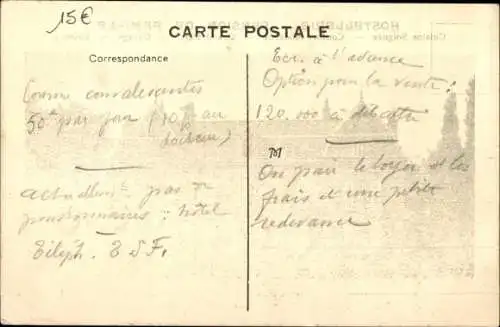 15€
CARTE POSTALE
Correspondance
Comme convalescentes
50 f par jour (10 f au
docteur)
actuellemt pas de
pensionnaires : hôtel
Téléph. T S F.
Ecr. à l'avance
Option pour la vente :
120.000 à débattre
On paie le loyer et les
frais d'une petite
redevance